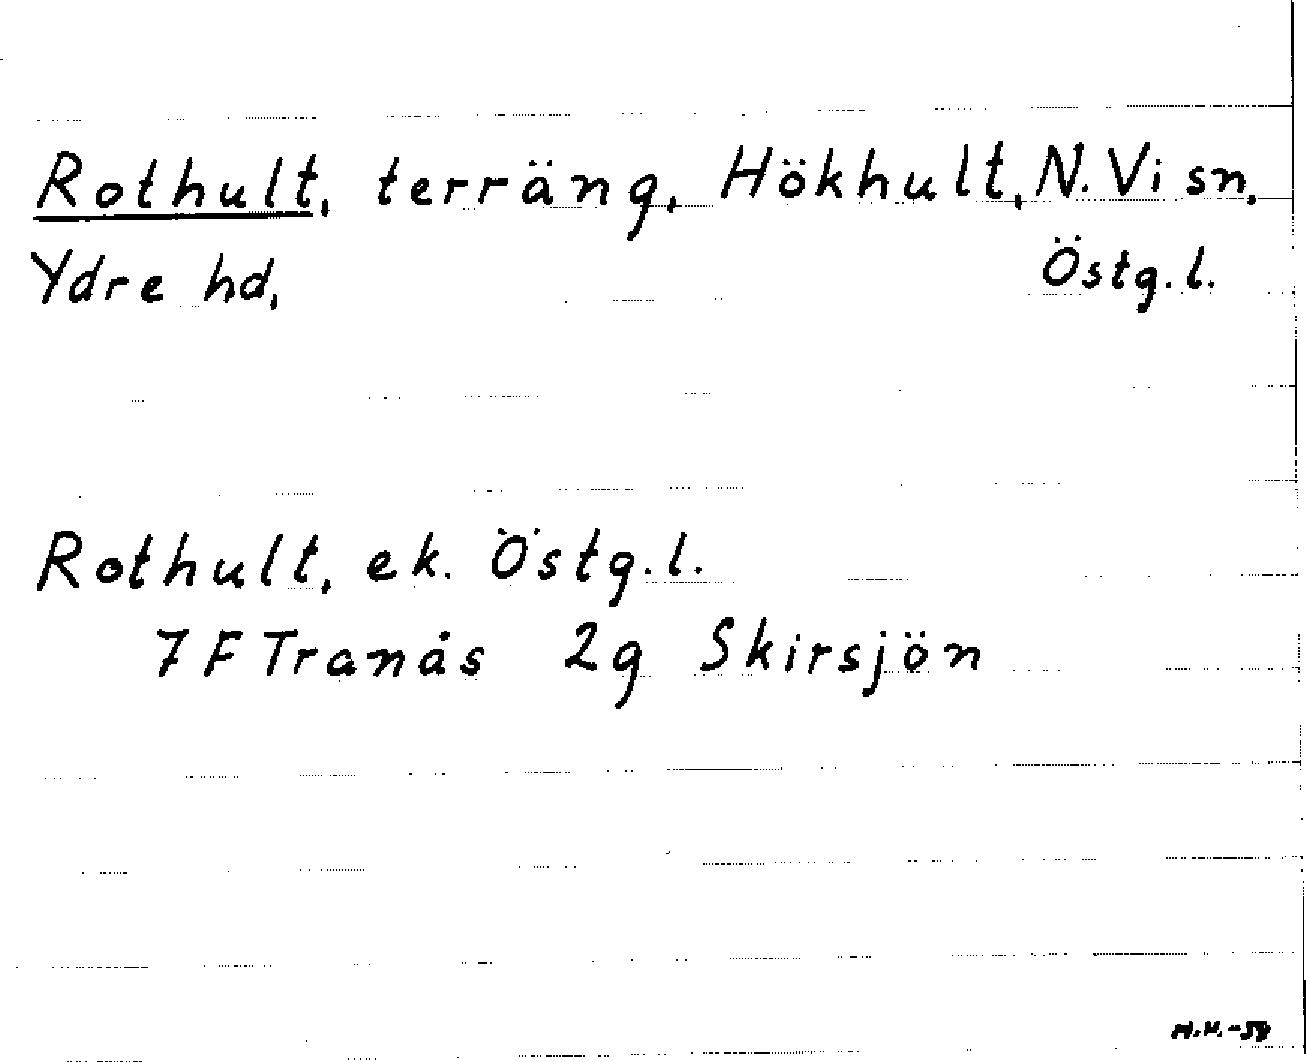 Rothult, terräng, Hökhult, N. Vi sn,
Ydre hd, Östg. l.
Rothult, ek. Östg. l.
7 F Tranås 2g Skirsjön